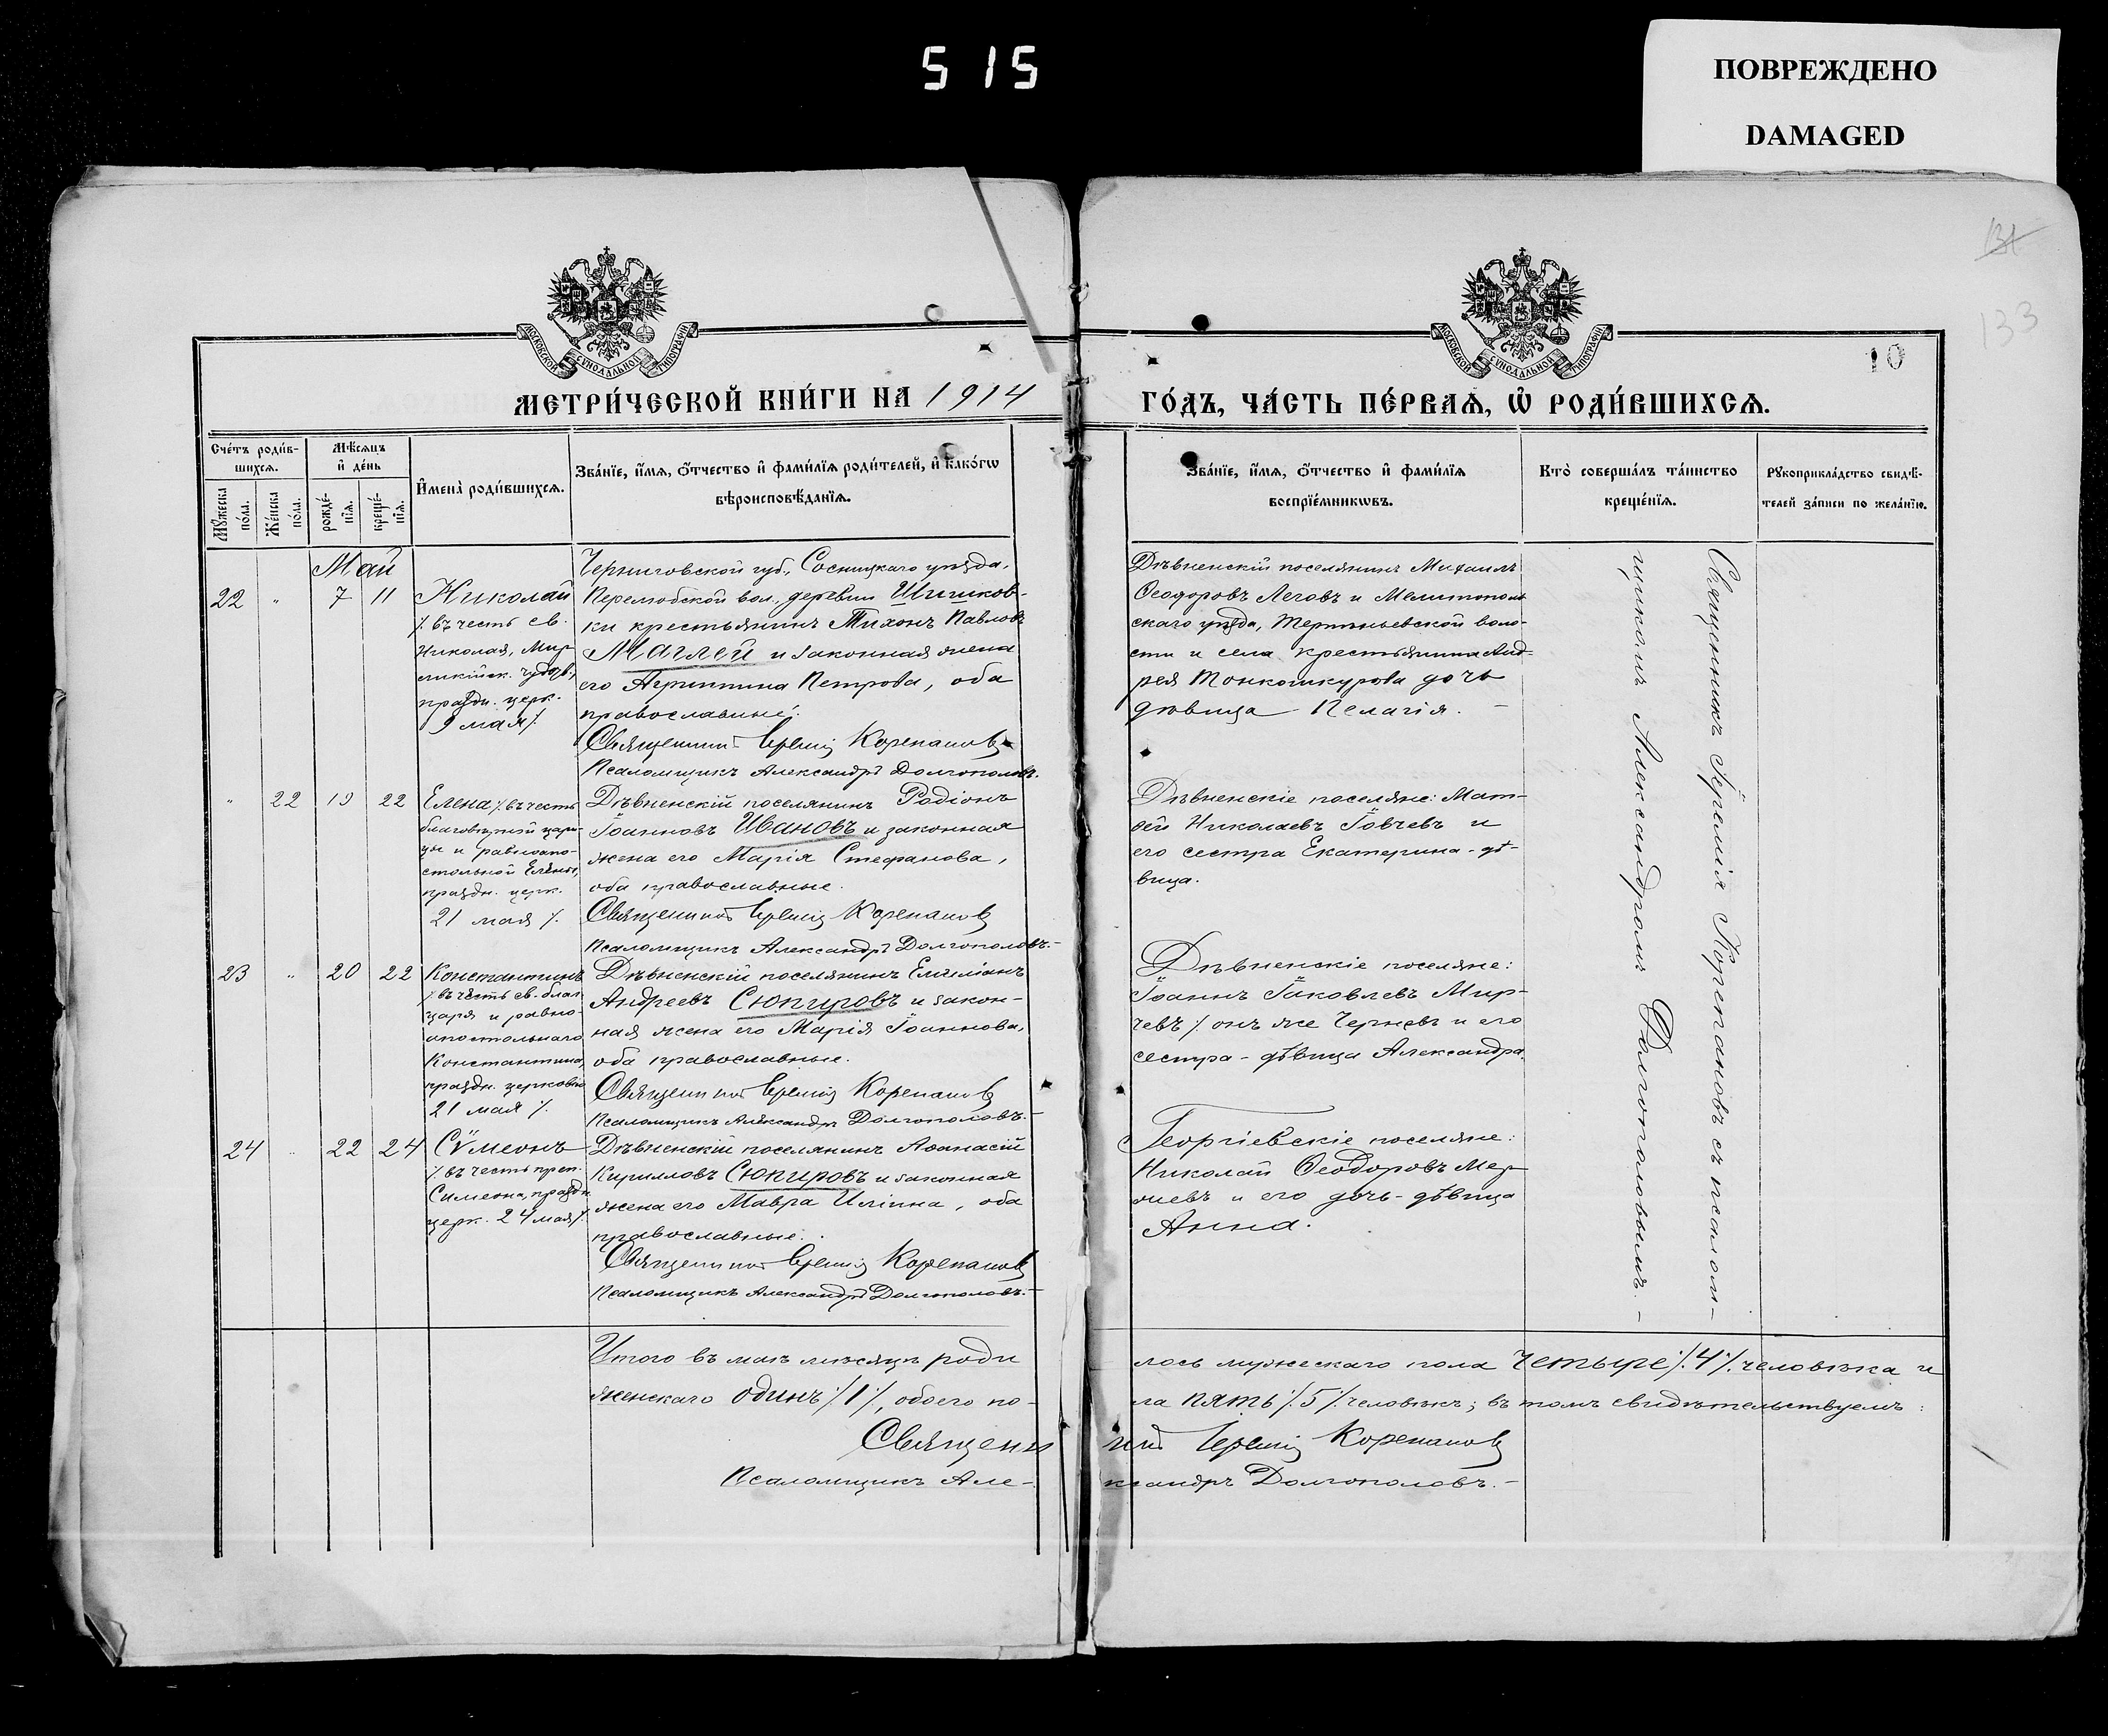 515
ПОВРЕЖДЕНО
DAMAGED
131
133
10
МОСКОВСКОЙ СѴНОДАЛЬНОЙ ТИПОГРАФІИ
МОСКОВСКОЙ СѴНОДАЛЬНОЙ ТИПОГРАФІИ
МЕТРИ́ЧЕСКОЙ КНИ́ГИ НА 1914
ГО́ДЪ, ЧА́СТЬ ПЕ́РВАѦ, Ѡ҆ РОДИ́ВШИХСѦ.
Сче́тъ роди́в-
шихсѧ.
Мꙋ́жеска
по́ла.
Же́нска
по́ла.
Мѣ́сѧцъ
и҆ де́нь
рожде́-
нїѧ.
креще́-
нїѧ.
И҆мена̀ роди́вшихсѧ.
Зва́нїе, и҆́мѧ, ѻ҆́тчество и҆ фами́лїѧ роди́телей, и҆ како́гѡ
вѣроисповѣ́данїѧ.
Зва́нїе, и҆́мѧ, ѻ҆́тчество и҆ фами́лїѧ
воспрїе́мникѡвъ.
Кто̀ соверша́лъ та́инство
креще́нїѧ.
Рꙋкоприкла́дство свидѣ́-
телей за́писи по жела́нїю.
Май
22 " 7 11
Николай
/. въ честь св.
Николая, Мир
ликійск. чудотв.,
праздн. церк.
9 мая /.
Черниговской губ., Сосницкаго уѣзда,
Перелюбской вол., деревни Шишков-
ки крестьянинъ Тихонъ Павловъ
Маглей и законная жена
его Агриппина Петрова, оба
православные.
Священникъ Іеремія Корепановъ
Псаломщикъ Александръ Долгополовъ.
Дѣвненскій поселянинъ Михаилъ
Ѳеодоровъ Леговъ и Мелитополь
скаго уѣзда, Терпѣньевской воло-
сти и села крестьянина Анд-
рея Тонкошкурова дочь
дѣвица Пелагія. -
" 22 19 22
Елена /. въ честь
благовѣрной цари-
цы и равноапо-
стольной Елены,
праздн. церк.
21 мая /.
Дѣвненскій поселянинъ Родіонъ
Іоанновъ Ивановъ и законная
жена его Марія Стефанова,
оба православные.
Священникъ Іеремія Корепановъ
Псаломщикъ Александръ Долгополовъ.-
Дѣвненскіе поселяне: Мат-
ѳей Николаевъ Іовчевъ и
его сестра Екатерина - дѣ-
вица.
23 " 20 22
Константинъ
/. въ честь св. благ.
царя и равно-
апостольнаго
Константина,
праздн. церковію
21 мая /.
Дѣвненскій поселянинъ Емиліанъ
Андреевъ Сюпировъ и закон-
ная жена его Марія Іоаннова,
оба православные.
Священникъ Іеремія Корепановъ
Псаломщикъ Александръ Долгополовъ.-
Дѣвненскіе поселяне:
Іоаннъ Іаковлевъ Мир-
чевъ /. онъ же Черневъ и его
сестра - дѣвица Александра.
24 " 22 24
Сѵмеонъ
/. въ честь преп.
Симеона, праздн.
церк. 24 мая /.
Дѣвненскій поселянинъ Аѳанасій
Кирилловъ Сюпировъ и законная
жена его Мавра Иліина, оба
православные.
Священникъ Іеремія Корепановъ
Псаломщикъ Александръ Долгополовъ.-
Георгіевскіе поселяне:
Николай Ѳеодоровъ
и его дочь - дѣвица
Анна.
Священникъ Іеремія Корепановъ съ псалом-
щикомъ Александромъ Долгополовымъ. -
Итого въ маѣ мѣсяцѣ роди лось мужескаго пола четыре /. 4 /. человѣка и
женскаго одинъ /. 1 /., обоего по- ла пять /. 5 /. человѣкъ; въ томъ свидѣтельствуемъ:
Священникъ Іеремія Корепановъ
Псаломщикъ Александръ Долгополовъ. -